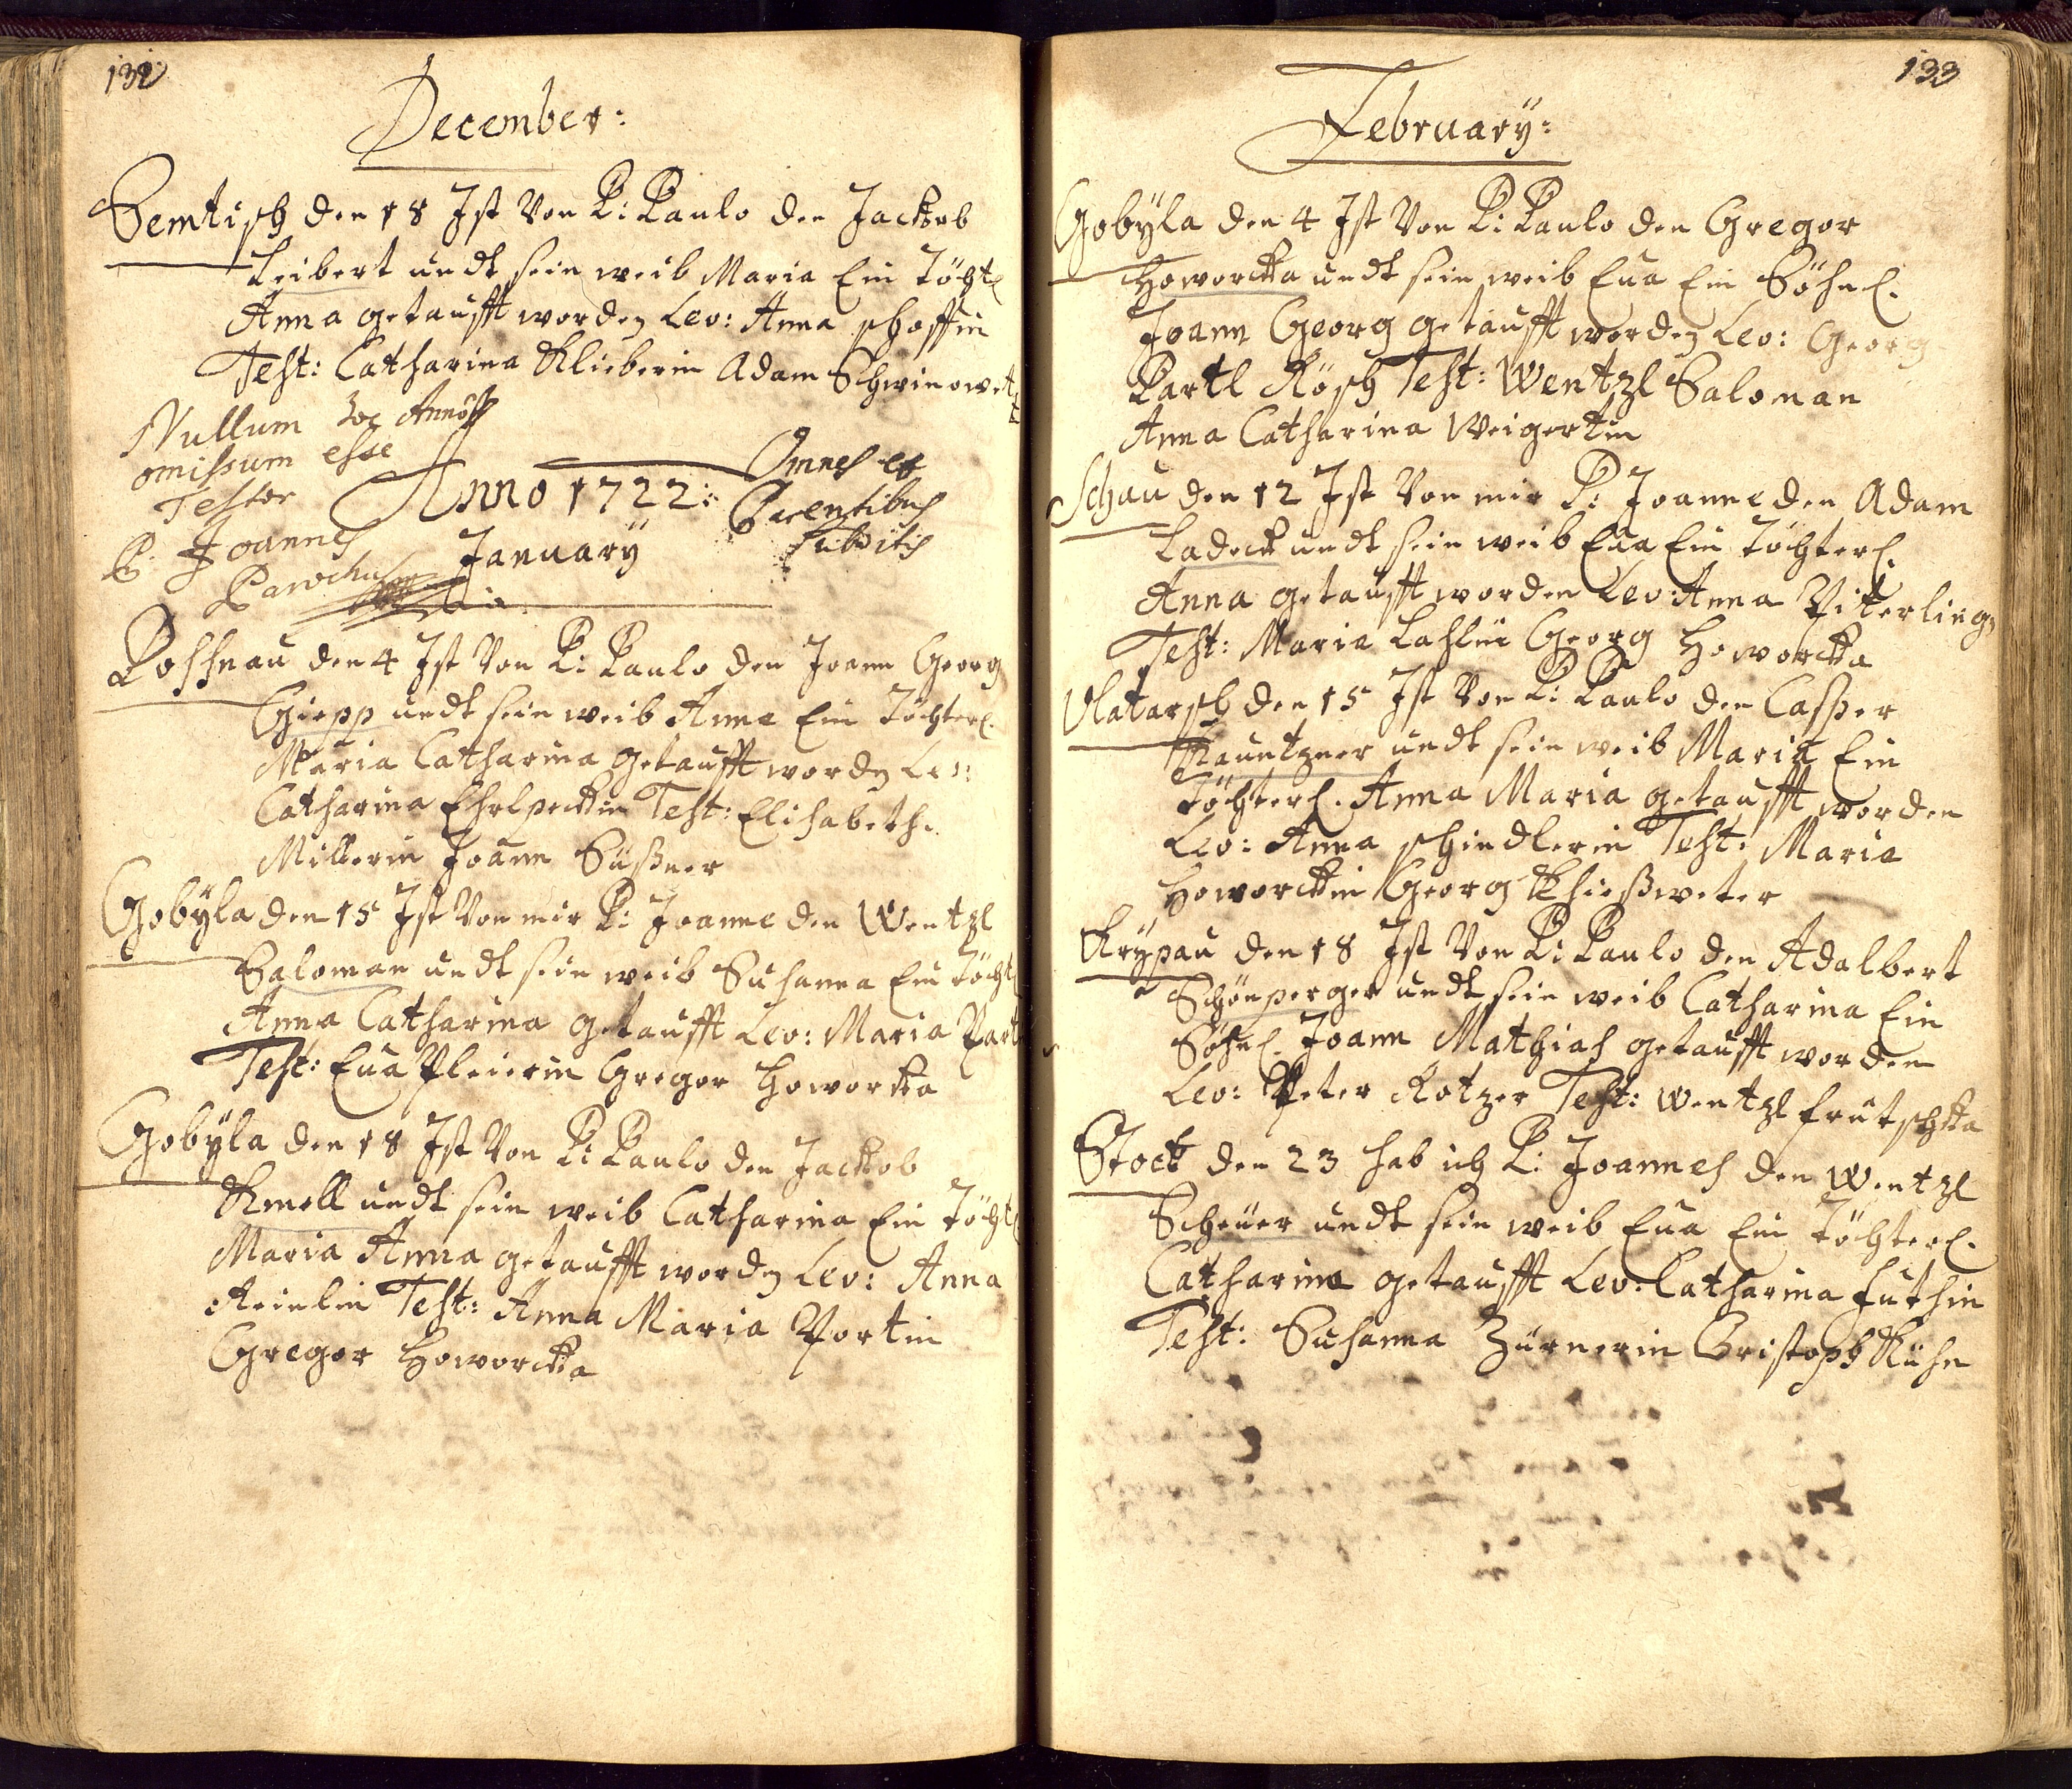 132
December:
Semtisch den 18 Ist Von P: Paulo den Jackob
Leibert undt sein weib Maria Ein Töcht
Anna getaufft worden Lev: Anna schaffin
Test: Catharina Klieberin Adam Schwinowet
Nullum hoc Anno
omissum esse
Testor
P. Joannes
Parochus
Anno 1722:
Omnes ex
Parentibus
subditis
January
Poschnau den 4 Ist Von P: Paulo den Joann Georg
Giepp undt sein weib Anna Ein Töchterl.
Maria Catharina getaufft worden Lev:
Catharina Test: Elisabeth
Millerin Joann Süssner
Gobÿla den 15 Ist Von mir P: Joanne den Wentzl
Saloman undt sein weib Susanna Ein Töcht
Anna Catharina getaufft Lev: Maria Part
Test: Eua Pleierin Gregor Howorcka
Gobÿla den 18 Ist Von P: Paulo den Jackob
Kmell undt sein weib Catharina Ein Töcht
Maria Anna getaufft worden Lev: Anna
Reinlin Test: Anna Maria Portin
Gregor Howorcka
133
Februarÿ:
Gobÿla den 4 Ist Von P: Paulo den Gregor
Howorcka undt sein weib Eua Ein Söhnl.
Joann Georg getaufft worden Lev: Georg
Bartl Rösch Test: Wentzl Saloman
Anna Catharina Weigertin
Schau den 12 Ist Von mir P: Joanne den Adam
Ladeck undt sein weib Eua Ein Töchterl.
Anna getaufft worden Lev: Anna Pitterling
Test: Maria Laslin Georg Howorcka
Vlatarsch den 15 Ist Von P: Paulo den Casper
Kauntzner undt sein weib Maria Ein
Töchterl. Anna Maria getaufft worden
Lev: Anna schindlerin Test: Maria
Howorckin Georg Khiessweter
Krÿpau den 18 Ist Von P: Paulo den Adalbert
Schönperger undt sein weib Catharina Ein
Söhnl. Joann Mathias getaufft worden
Lev: Peter Kotzer Test: Wentzl frutschka
Stock den 23 hab ich P: Joannes den Wentzl
Scheüer undt sein weib Eua Ein Töchterl.
Catharina getaufft Lev: Catharina Futhin
Test: Susanna Zürnerin Cristoph Kühn